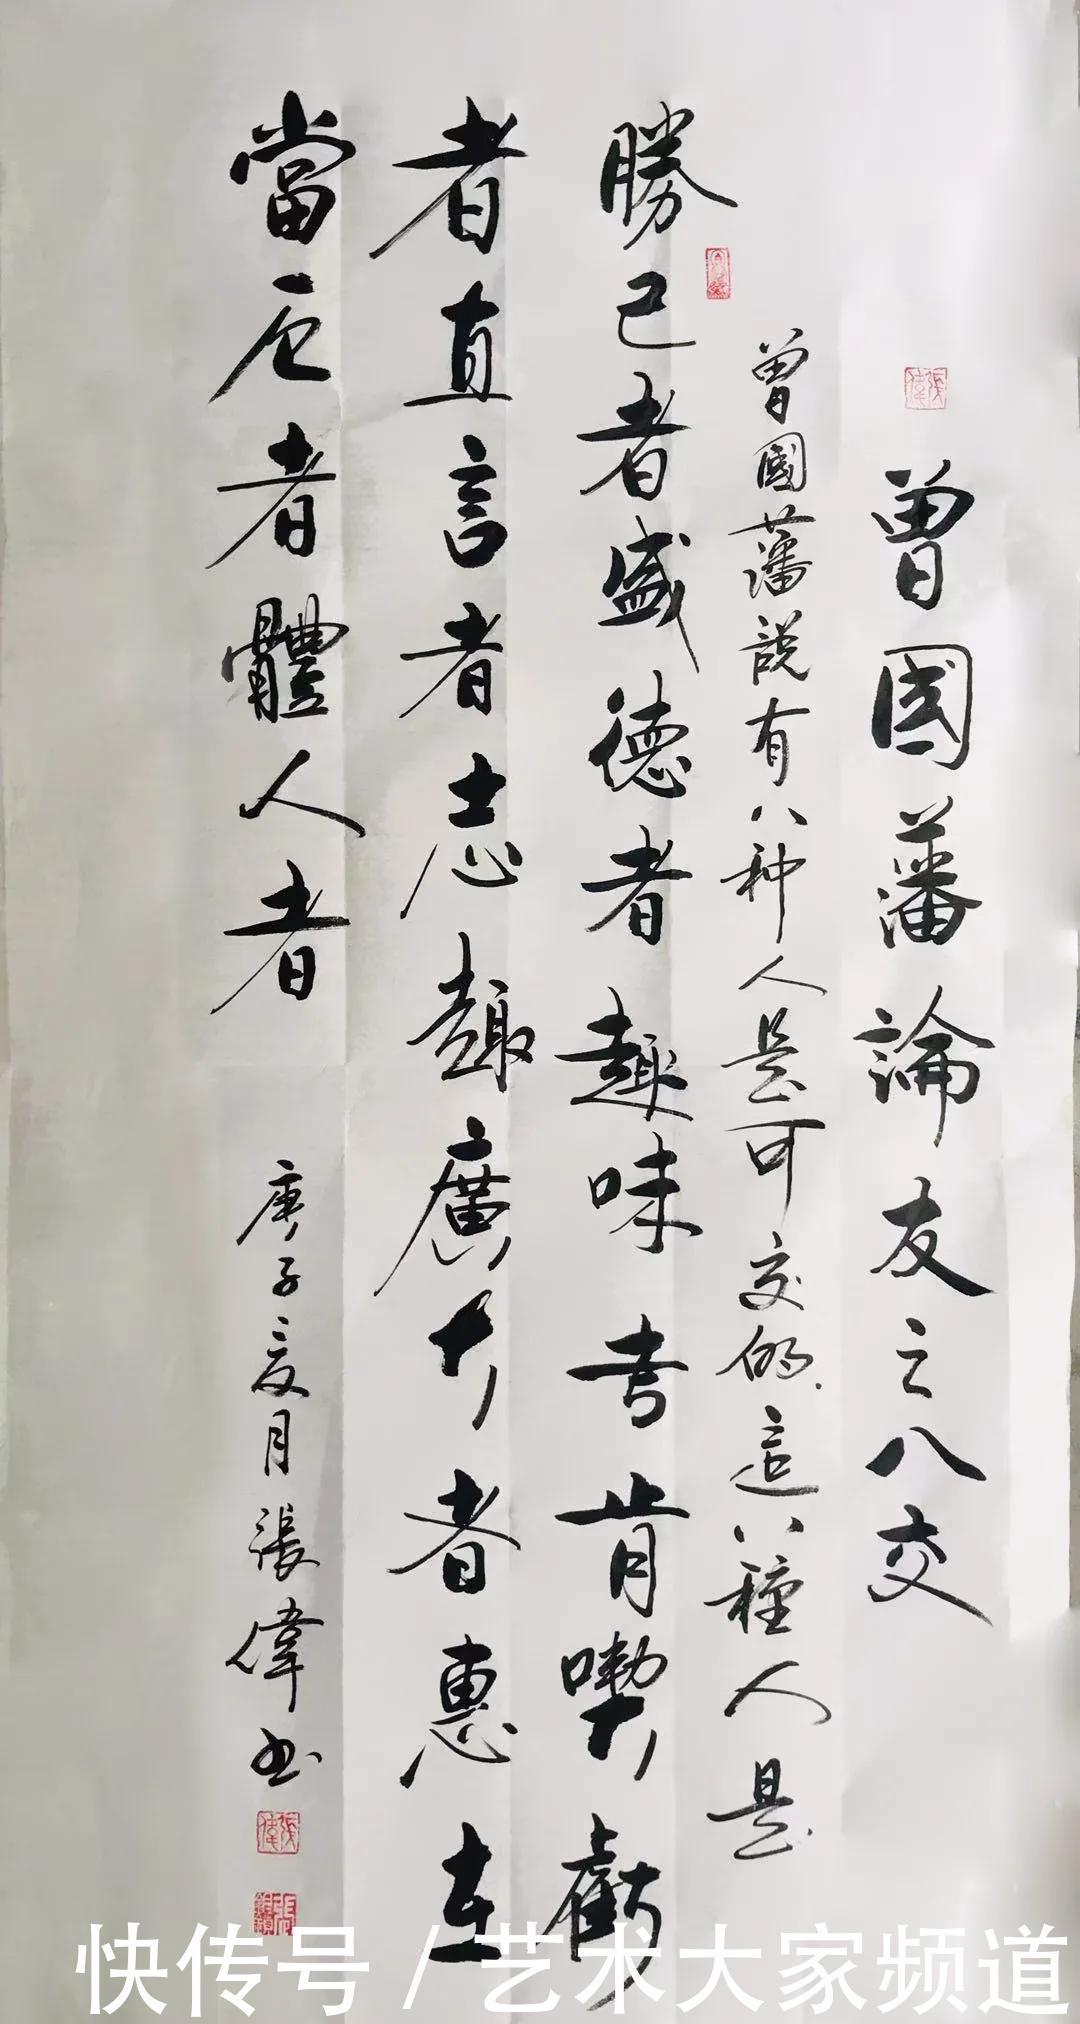 曾國藩論友之八交
曾國藩説有八种人是可交的.這八種人是
勝己者盛德者趣味者肯喫虧
者直言者志趣廣大者惠在
當厄者體人者
庚子夏月張偉书
張偉
快传号/艺术大家频道